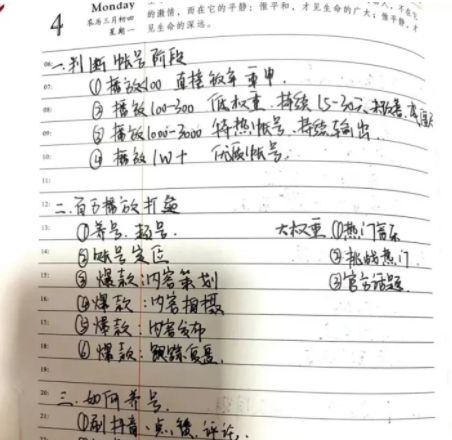 4
Monday
农历三月初四
星期一
的激情，而在它的平静；惟平和，才见生命的广大；惟平静，才
见生命的深远。
一.判断帐号阶段
①播放100 直接放弃重申.
②播放100-300 低权重.持续15-30天.
③播放1000-3000 待热帐号.持续输出
④播放1W+ 优质帐号.
二.百万播放打造
①养号.
大权重 ①热门音乐
②帐号定位
②挑战热门
③爆款:内容策划
③官方话题
④爆款:内容拍摄
⑤爆款:内容发布
⑥爆款:跟踪复盘.
三.如何养号.
①刷抖音、点赞,评论,